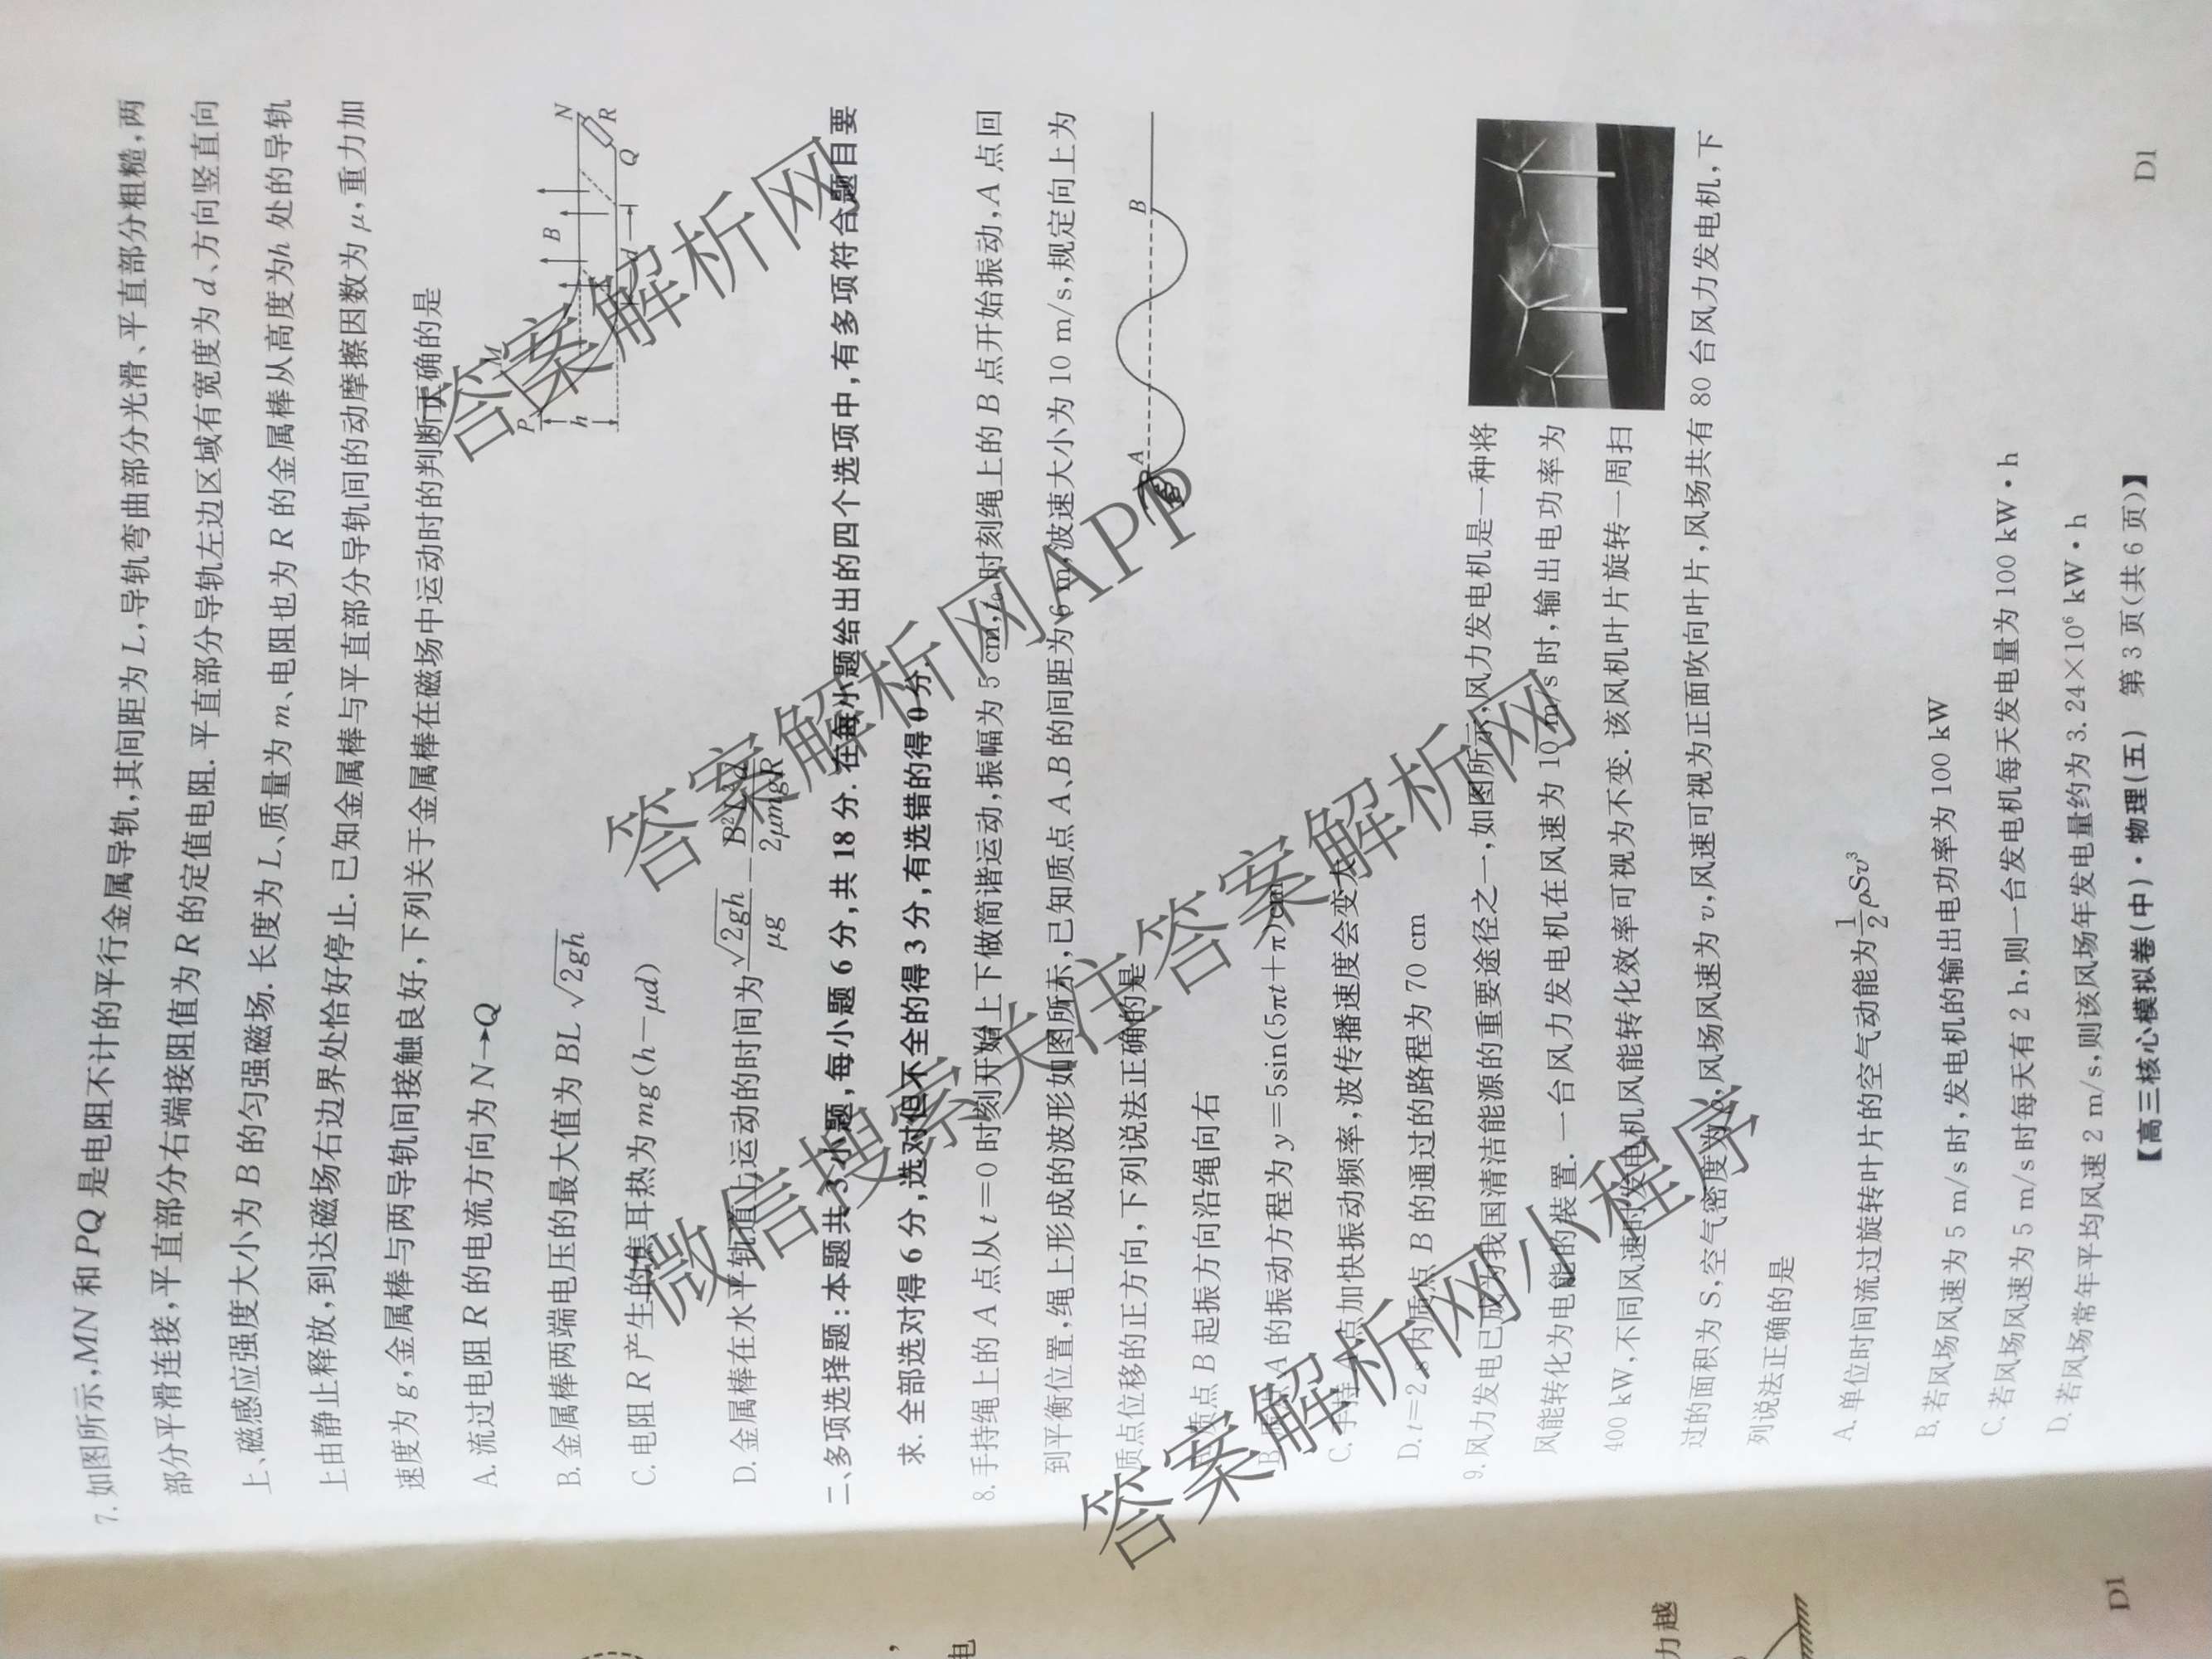 7. 如图所示,MN 和 PQ 是电阻不计的平行金属导轨,其间距为 L,导轨弯曲部分光滑、平直部分粗糙,两
部分平滑连接,平直部分右端接阻值为 R 的定值电阻. 平直部分导轨左边区域有宽度为 d、方向竖直向
上、磁感应强度大小为 B 的匀强磁场. 长度为 L、质量为 m、电阻也为 R 的金属棒从高度为h 处的导轨
上由静止释放,到达磁场右边界处恰好停止. 已知金属棒与平直部分导轨间的动摩擦因数为 μ,重力加
速度为 g,金属棒与两导轨间接触良好,下列关于金属棒在磁场中运动时的判断正确的是
A. 流过电阻 R 的电流方向为 N→Q
B. 金属棒两端电压的最大值为 BL √2gh
C. 电阻 R 产生的焦耳热为 mg(h−μd)
D. 金属棒在水平轨道上运动的时间为 √2gh/μg − B²L²d/2μmgR
P
M
h
B
d
N
R
Q
二、多项选择题:本题共 3 小题,每小题 6 分,共 18 分. 在每小题给出的四个选项中,有多项符合题目要
求. 全部选对得 6 分,选对但不全的得 3 分,有选错的得 0 分.
8. 手持绳上的 A 点从 t=0 时刻开始上下做简谐运动,振幅为 5 cm,t₀ 时刻绳上的 B 点开始振动,A 点回
到平衡位置,绳上形成的波形如图所示,已知质点 A、B 的间距为 6 m,波速大小为 10 m/s,规定向上为
质点位移的正方向,下列说法正确的是
A. 质点 B 起振方向沿绳向右
B. 质点 A 的振动方程为 y=5sin(5πt+π)cm
C. 手持 A 点加快振动频率,波传播速度会变大
D. t=2 s 内质点 B 的通过的路程为 70 cm
A
B
9. 风力发电已成为我国清洁能源的重要途径之一,如图所示,风力发电机是一种将
风能转化为电能的装置. 一台风力发电机在风速为 10 m/s 时,输出电功率为
400 kW,不同风速时发电机风能转化效率可视为不变. 该风机叶片旋转一周扫
过的面积为 S,空气密度为 ρ,风场风速为 v,风速可视为正面吹向叶片,风场共有 80 台风力发电机,下
列说法正确的是
A. 单位时间流过旋转叶片的空气动能为 1/2 ρSv³
B. 若风场风速为 5 m/s 时,发电机的输出电功率为 100 kW
C. 若风场风速为 5 m/s 时每天有 2 h,则一台发电机每天发电量为 100 kW·h
D. 若风场常年平均风速 2 m/s,则该风场年发电量约为 3.24×10⁶ kW·h
【高三核心模拟卷(中)·物理(五) 第 3 页(共 6 页)】
D1
答案解析网
答案解析网APP
微信搜索关注答案解析网
答案解析网小程序
,
电
力越
D1